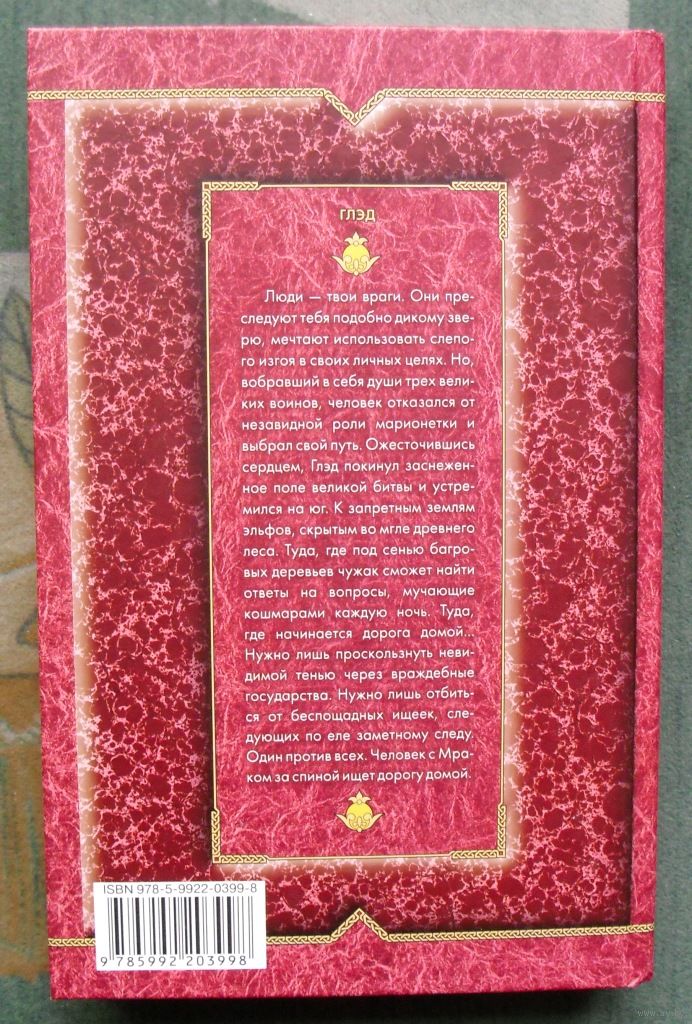 ГЛЭД
Люди — твои враги. Они пре-
следуют тебя подобно дикому зве-
рю, мечтают использовать слепо-
го изгоя в своих личных целях. Но,
вобравший в себя души трех вели-
ких воинов, человек отказался от
незавидной роли марионетки и
выбрал свой путь. Ожесточившись
сердцем, Глэд покинул заснежен-
ное поле великой битвы и устре-
мился на юг. К запретным землям
эльфов, скрытым во мгле древнего
леса. Туда, где под сенью багро-
вых деревьев чужак сможет найти
ответы на вопросы, мучающие
кошмарами каждую ночь. Туда,
где начинается дорога домой...
Нужно лишь проскользнуть неви-
димой тенью через враждебные
государства. Нужно лишь отбить-
ся от беспощадных ищеек, сле-
дующих по еле заметному следу.
Один против всех. Человек с Мра-
ком за спиной ищет дорогу домой.
ISBN 978-5-9922-0399-8
9 785992 203998